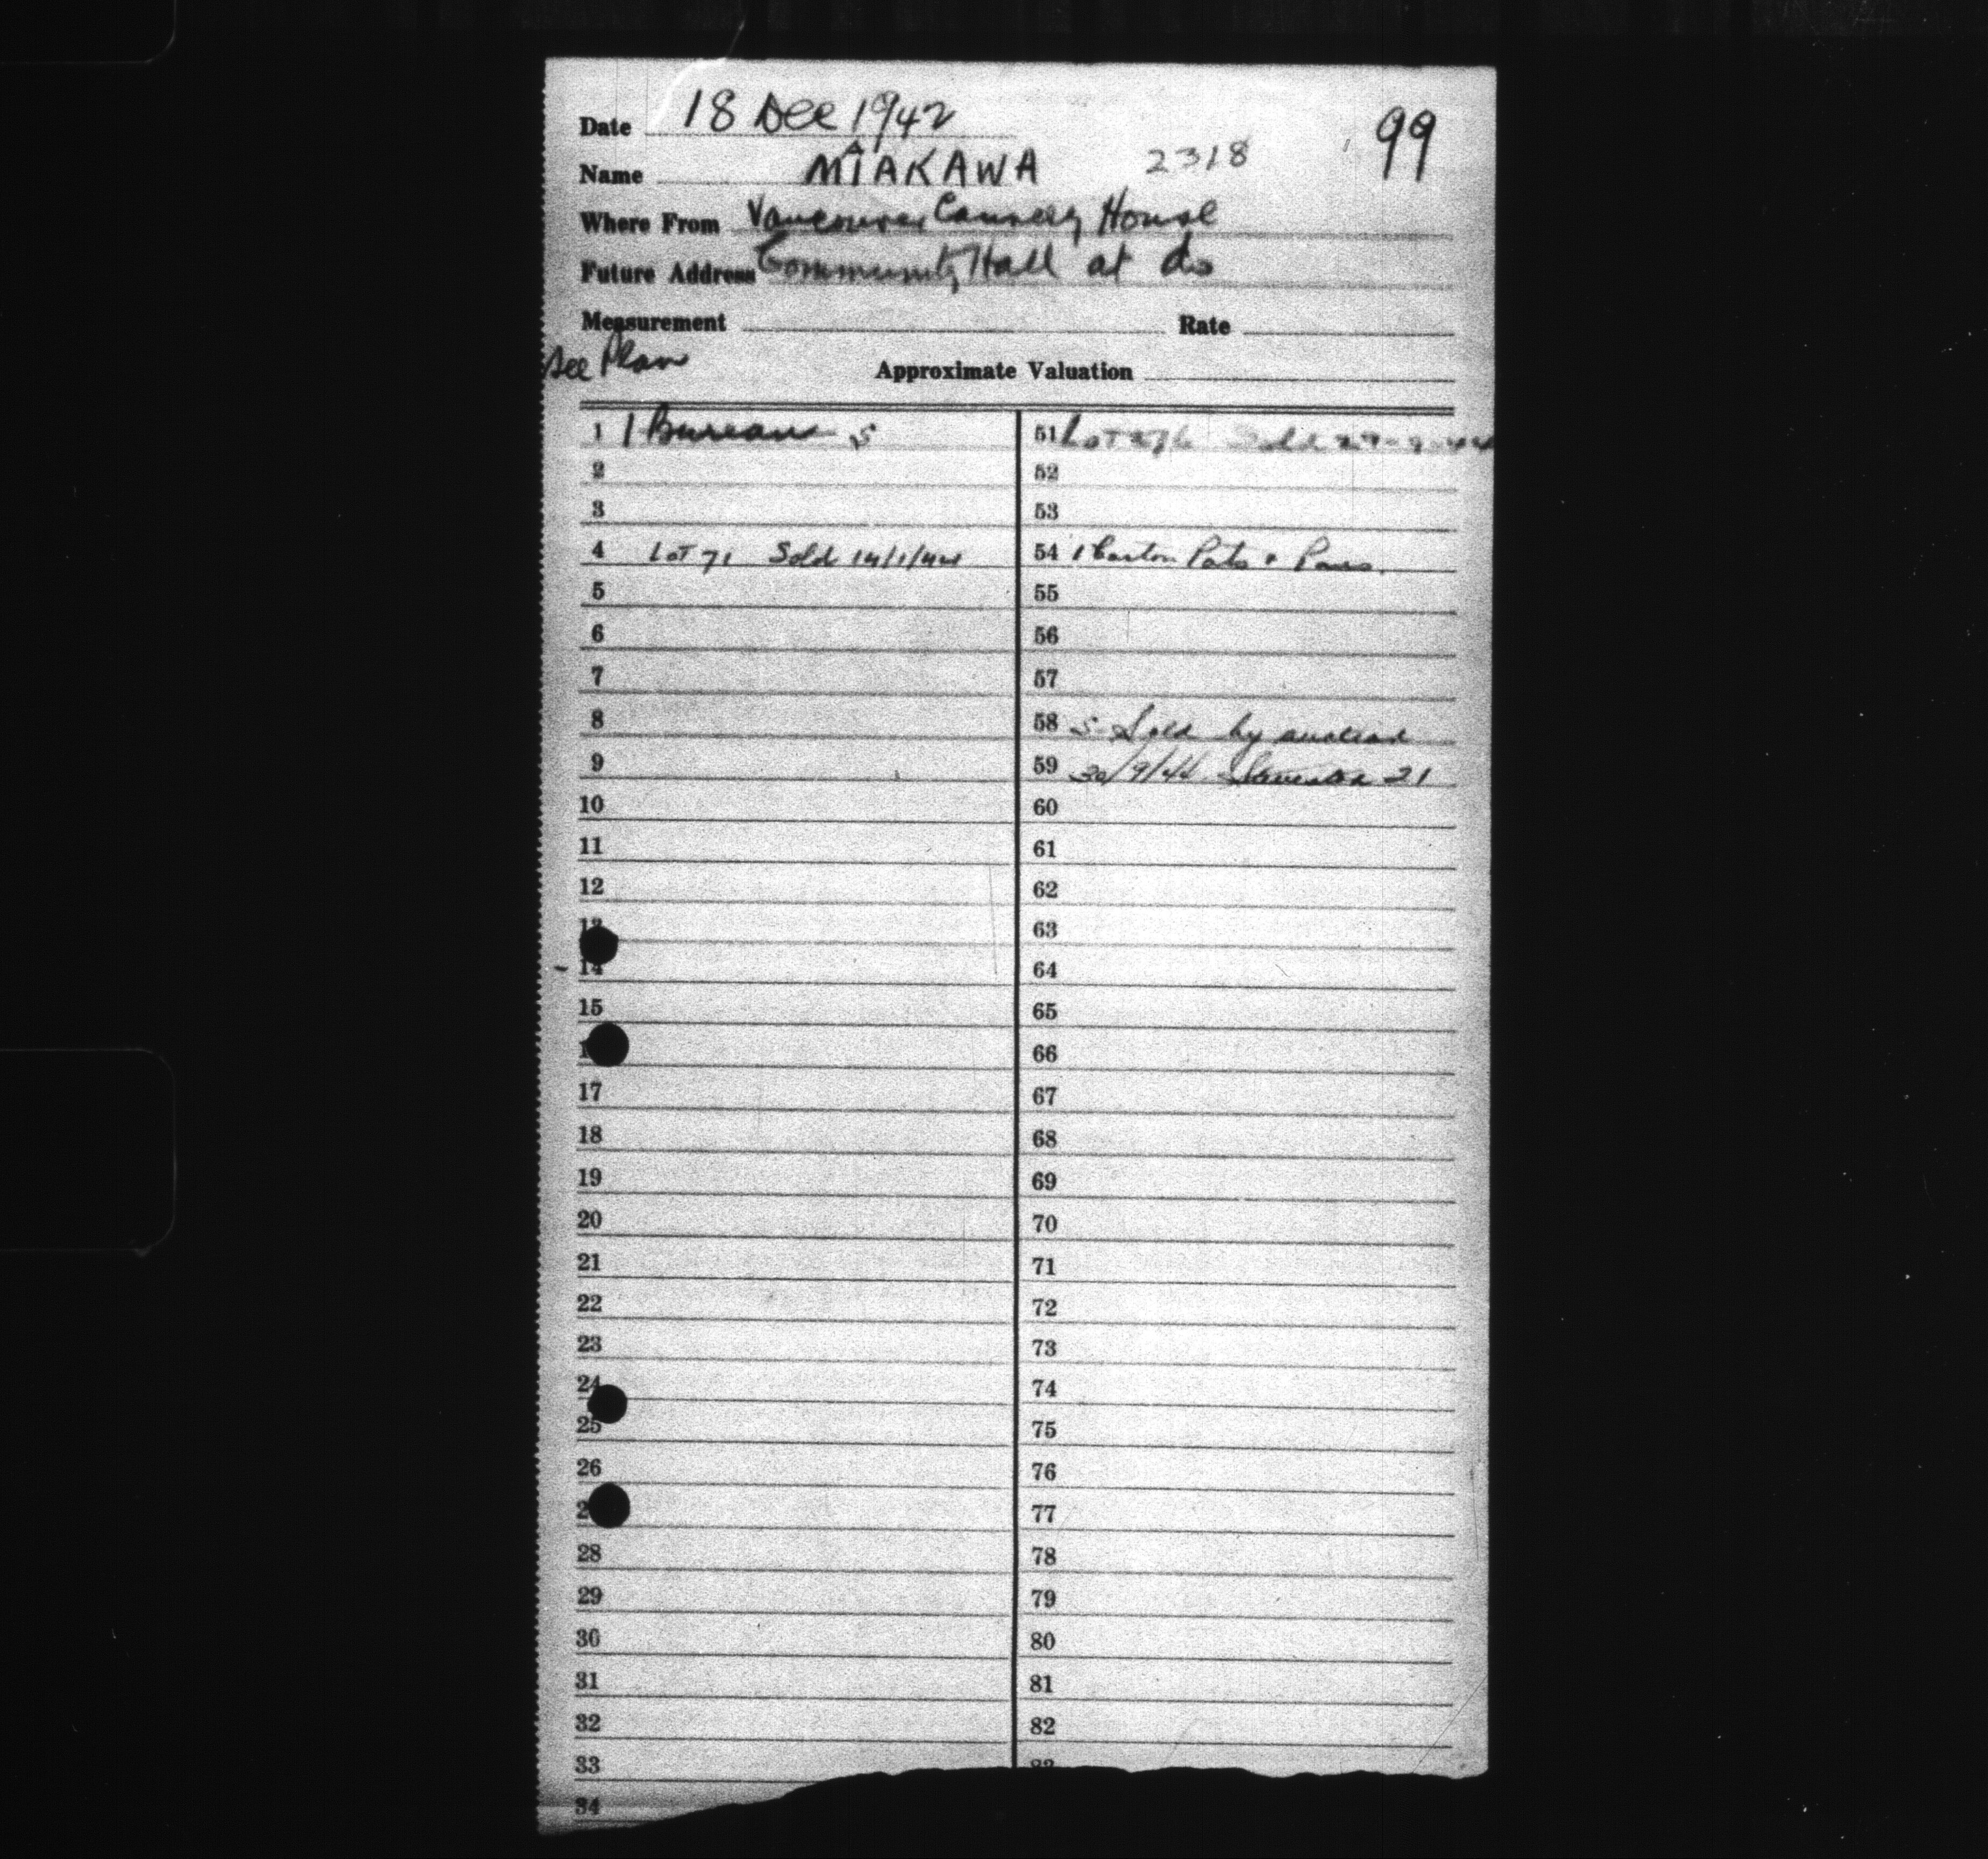 99
Date 18 Dec 1942
Name MIAKAWA 2318
Where From Vancouver Cannery House
Future Address Community Hall at do
Measurement Rate
See Plan
Approximate Valuation
1 1 Bureau S
2
3
4 LOT 71 Sold 14/1/44
5
6
7
8
9
10
11
12
13
14
15
17
18
19
20
21
22
23
24
25
26
28
29
30
31
32
33
34
51 LOT Sold
52
53
54 1 Carton Pots + Pans.
55
56
57
58 S- Sold by auction
59 30/9/44 Steveston 21
60
61
62
63
64
65
66
67
68
69
70
71
72
73
74
75
76
77
78
79
80
81
82